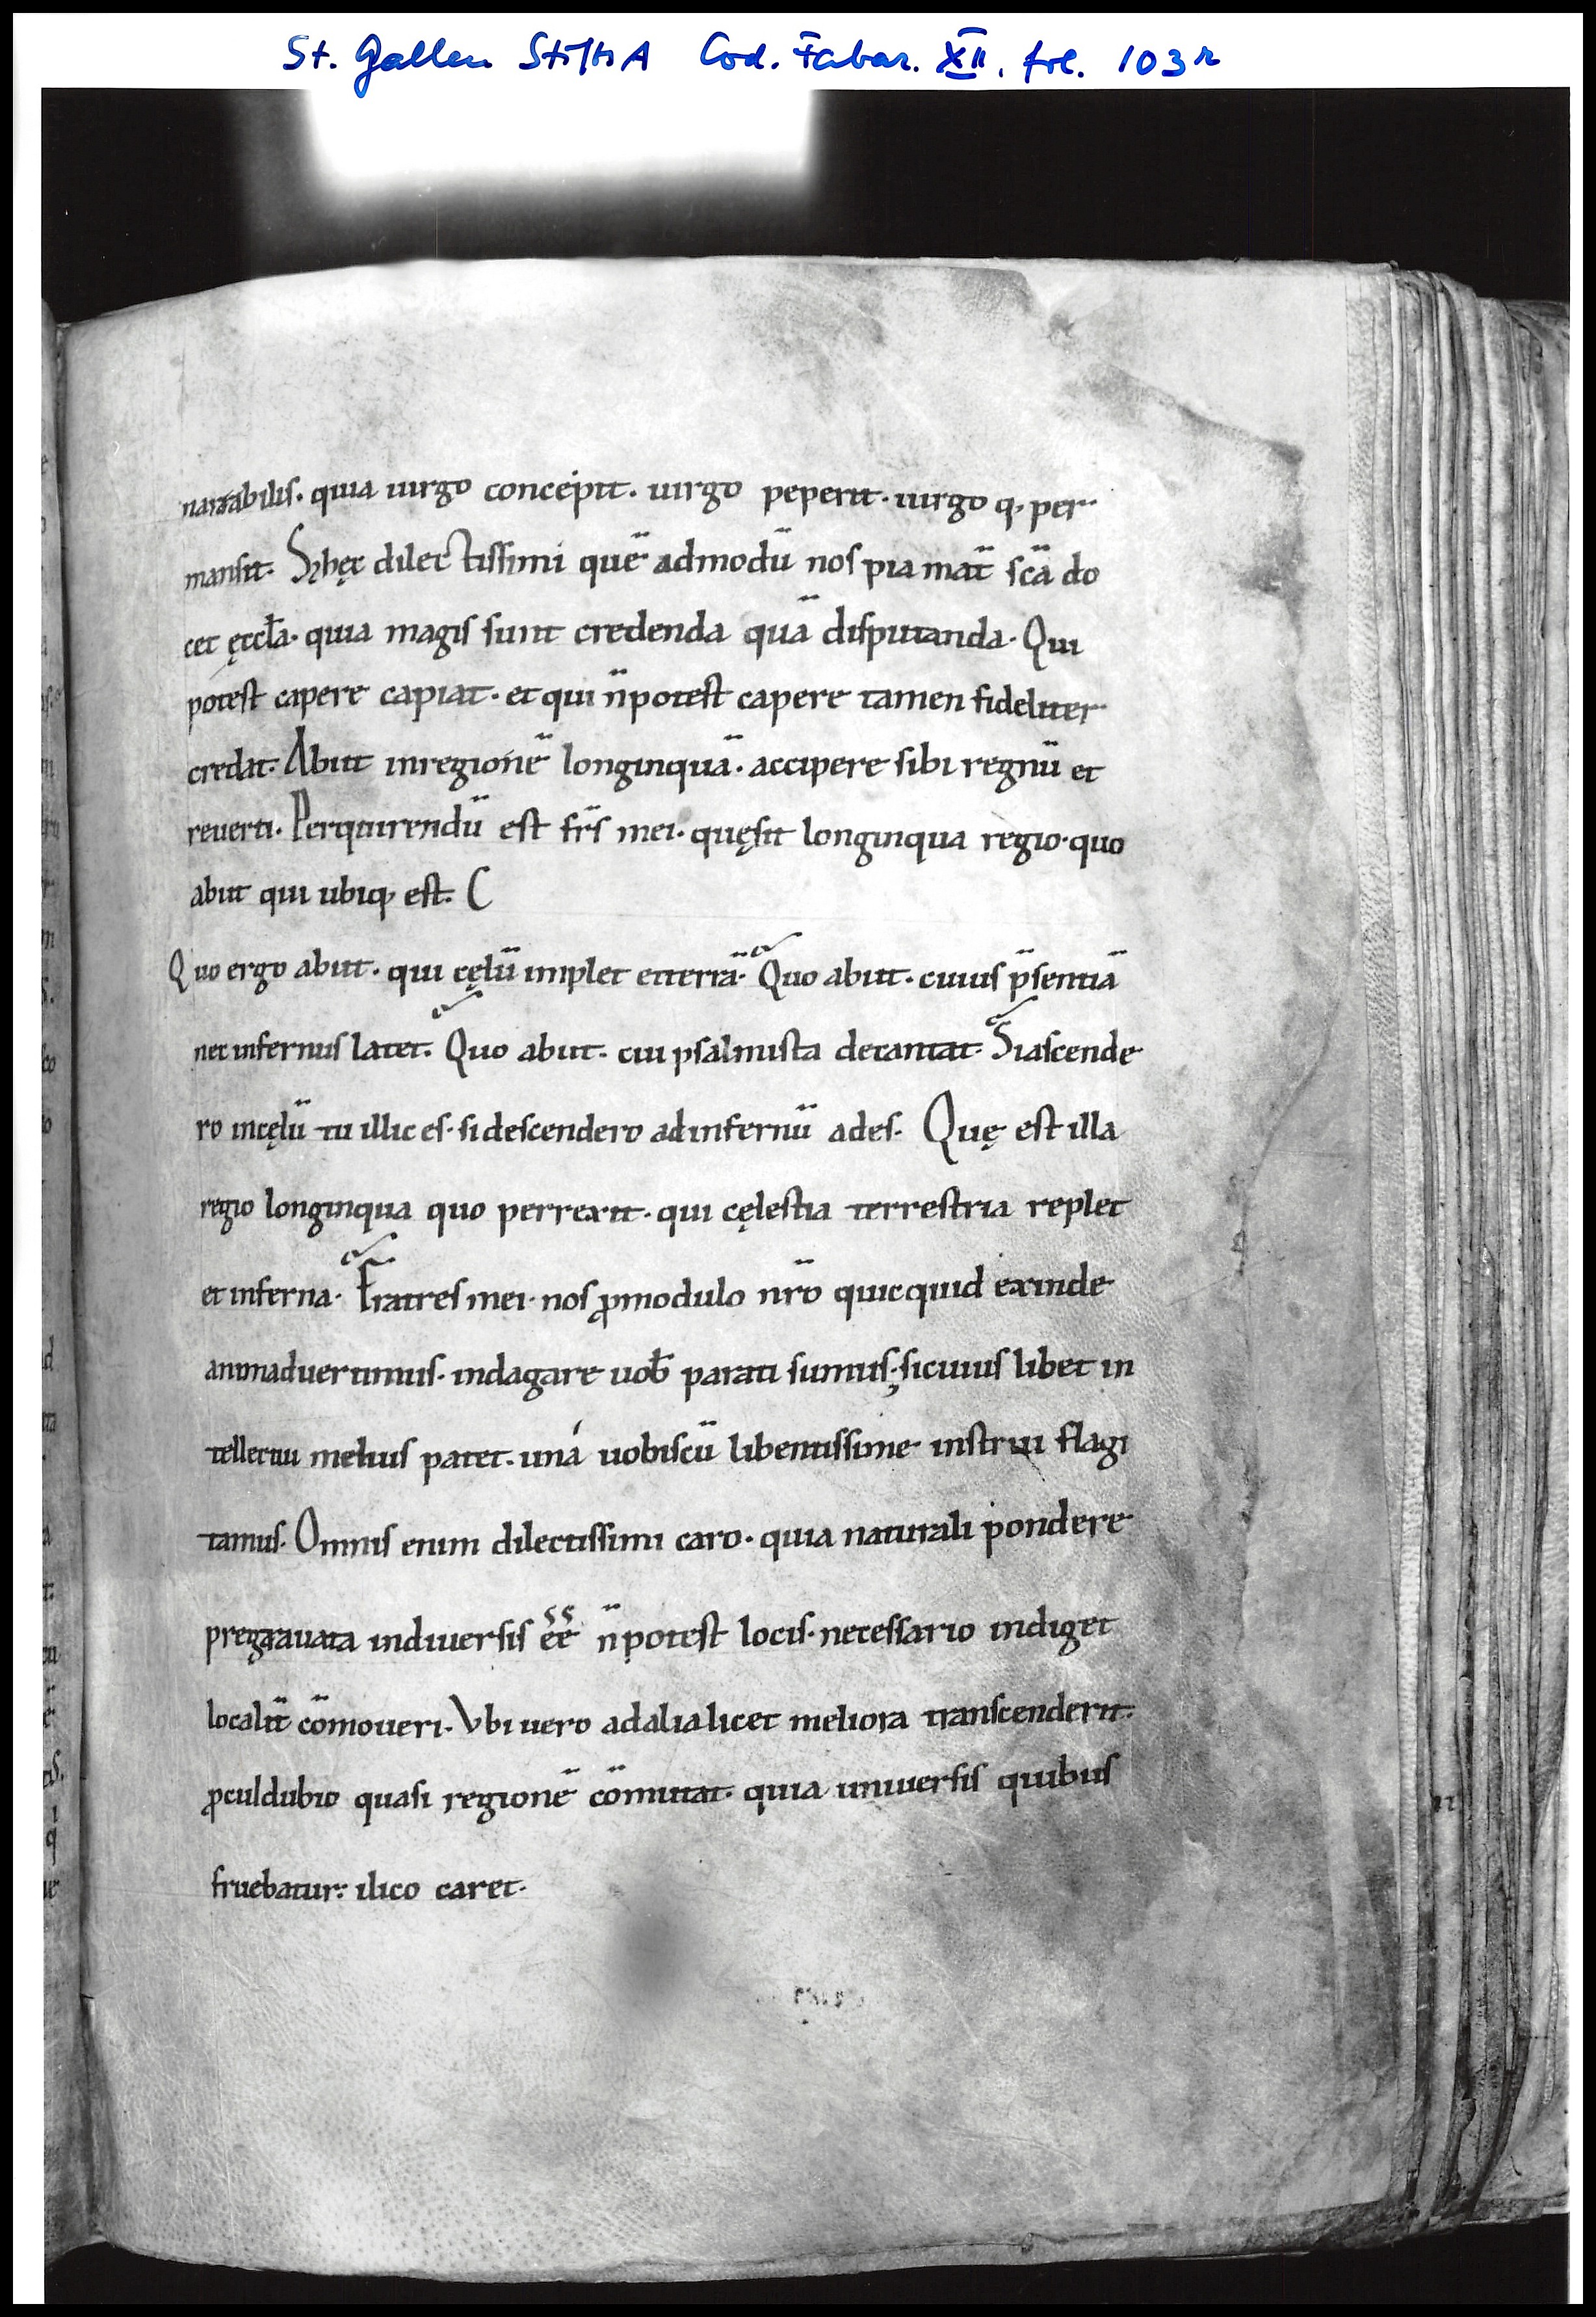 St. Gallen StiftsA Cod. Fabar. XII, fol. 103r
narrabilis· quia uirgo concepit· uirgo peperit· uirgo q; per
mansit· S; hęc dilectissimi quē admodū nos pia mat̄ scā do
cet ęccl̄a· quia magis sunt credenda quā disputanda· Qui
potest capere capiat· et qui n̄ potest capere tamen fideliter
credat· Abiit in regionē longinquā· accipere sibi regnū et
reuerti· Perquirendū est fr̄s mei· quę sit longinqua regio· quo
abiit qui ubiq; est· C
Quo ergo abiit· qui cęlū implet et terrā· Quo abiit· cuius p̄sentiā
nec infernus latet· Quo abiit· cui psalmista decantat· Si ascende
ro in cęlū tu illic es· si descendero ad infernū ades· Quę est illa
regio longinqua quo perrexit· qui cęlestia terrestria replet
et inferna· Fratres mei· nos ꝓ modulo nr̄o quicquid exinde
animaduertimus· indagare uob̄ parati sumus; si cuius libet in
tellectui melius patet· uná uobiscū libentissime instrui flagi
tamus· Omnis enim dilectissimi caro· quia naturali pondere
pregrauata in diuersis ēē n̄ potest locis· necessario indiget
localit̄ cōmoueri· Vbi uero ad alia licet meliora transcenderit·
ꝓculdubio quasi regionē cōmutat· quia uniuersis quibus
fruebatur: ilico caret·